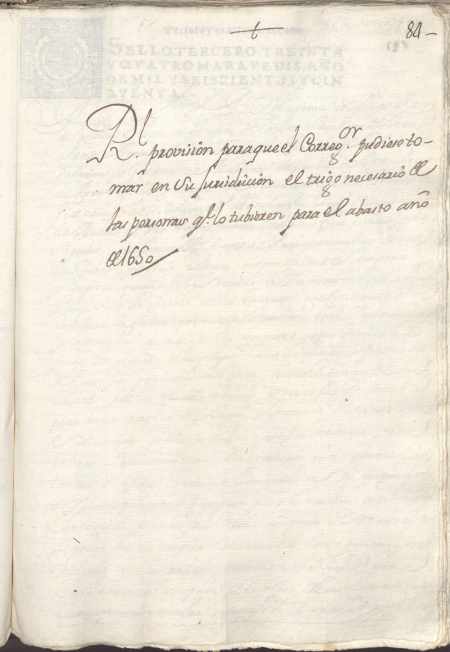 84
SELLO TERCERO, TREINTA
Y QUATRO MARAVEDIS, AÑO
DE MIL Y SEISCIENTOS Y CIN
QVENTA.
Rl provision para que el Corregor pudiese to-
mar en su jurisdiction el trigo necesario de
las personas q. lo tubieren para el abasto año
de 1650